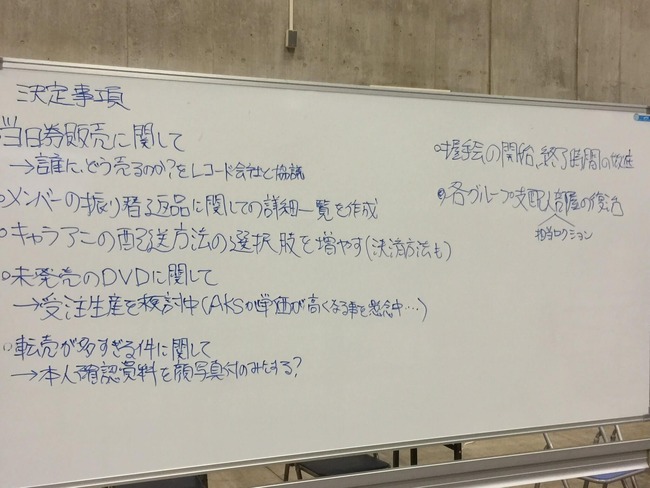 決定事項
当日券販売に関して
→誰に、どう売るのか?をレコード会社と協議
○メンバーの振り替え返品に関しての詳細一覧を作成
○キャラアニの配送方法の選択肢を増やす(決済方法も)
○未発売のDVDに関して
→受注生産を検討中(AKSが単価が高くなる事を懸念中…)
○転売が多すぎる件に関して
→本人確認資料を顔写真付のみとする?
○握手会の開始、終了時間の改
○各グループ支配人部屋の復活
担当セクション